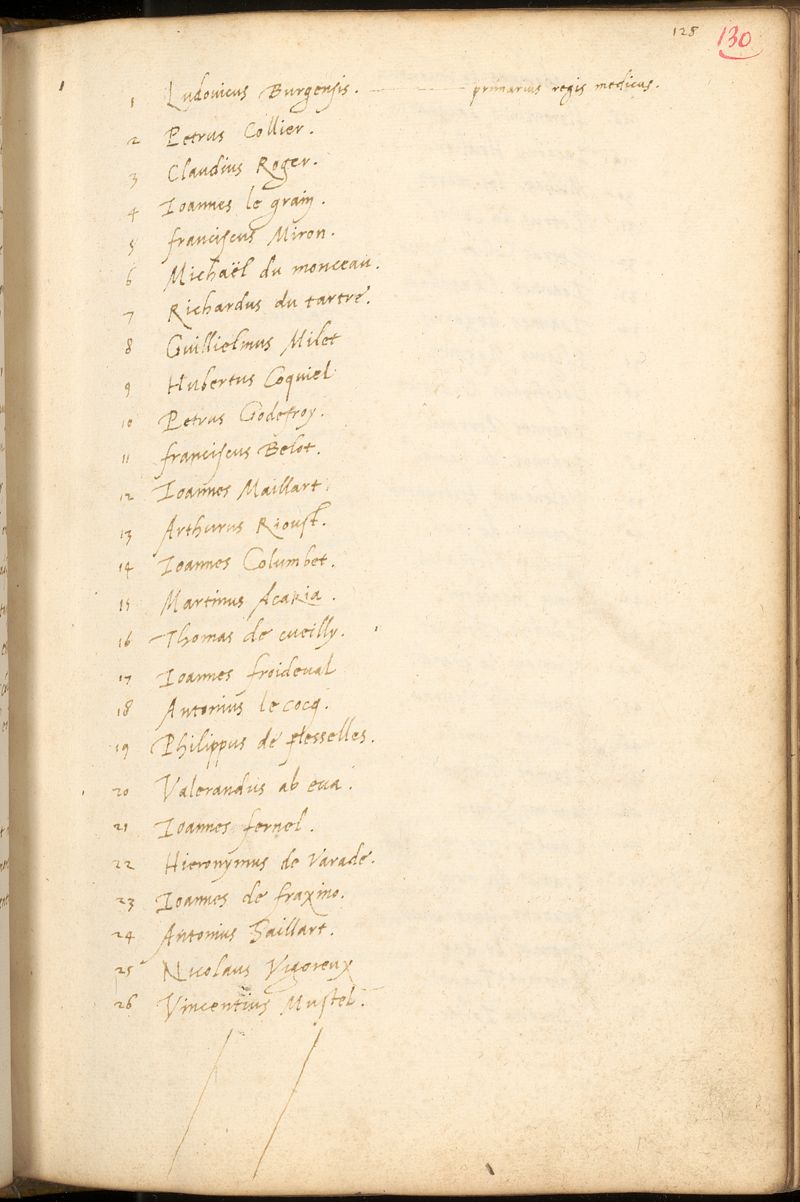 128 130
1 Ludovicus Burgensis. primarius regis medicus.
2 Petrus Collier.
3 Claudius Roger.
4 Ioannes le grain.
5 franciscus Miron.
6 Michaël du monceau.
7 Richardus du tartre.
8 Guillielmus Milet
9 Hubertus Coquiel
10 Petrus Godefroy.
11 franciscus Belot.
12 Ioannes Maillart.
13 Arthurus Rioust.
14 Ioannes Columbet.
15 Martinus Acakia.
16 Thomas de cueilly.
17 Ioannes froideual
18 Antonius le cocq.
19 Philippus de flesselles.
20 Valerandus ab eua.
21 Ioannes fernel.
22 Hieronymus de Varade.
23 Ioannes de fraxino.
24 Antonius Saillart.
25 Nicolaus Vigoreux
26 Vincentius Mustel.